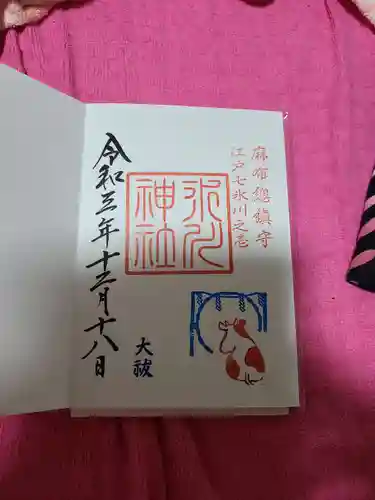 麻布總鎮守
江戸七氷川之壱
氷川神社
大祓
令和三年十二月十八日